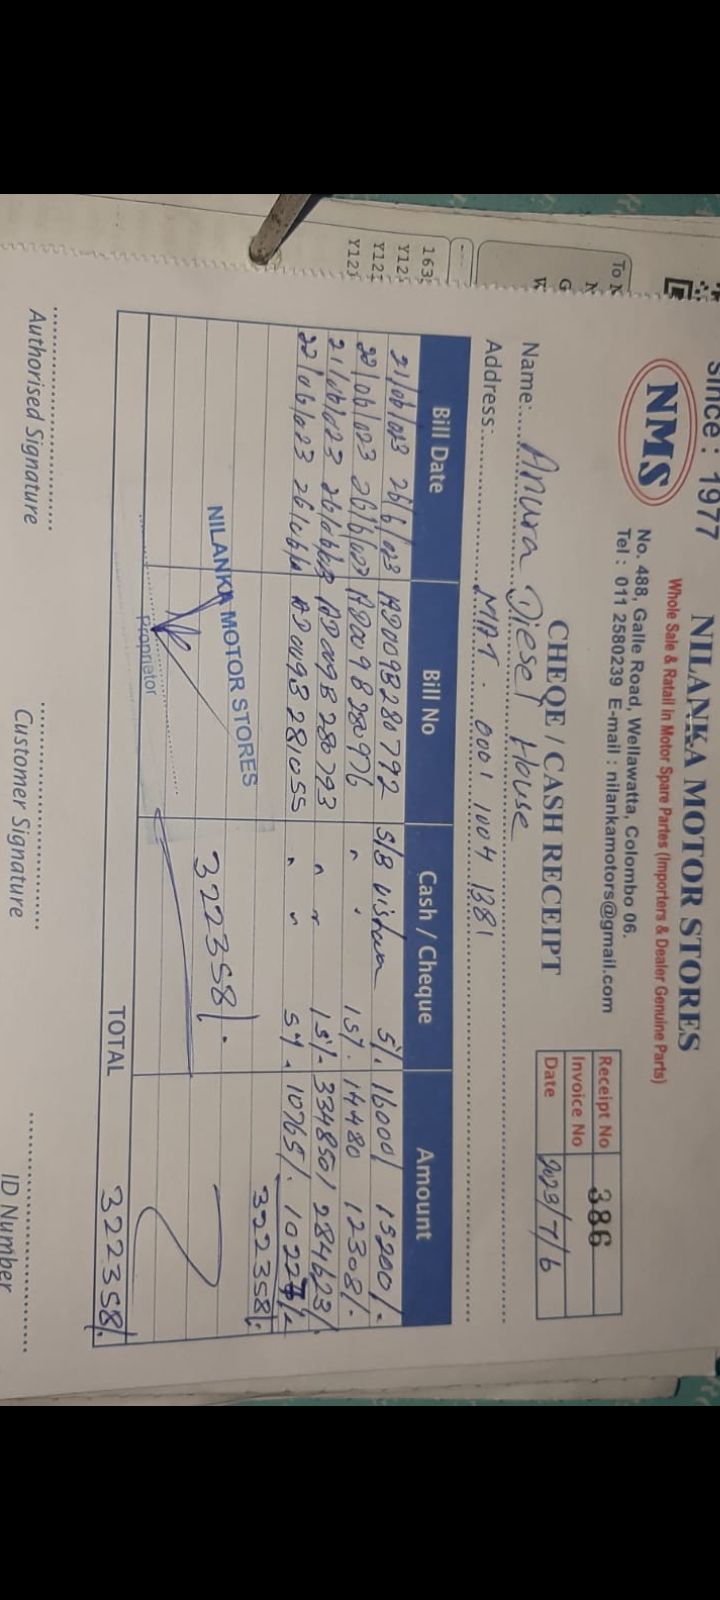 since : 1977
NILANKA MOTOR STORES
Whole Sale & Ratail in Motor Spare Partes (Importers & Dealer Genuine Parts)
NMS
No. 488, Galle Road, Wellawatta, Colombo 06.
Tel : 011 2580239 E-mail : nilankamotors@gmail.com
CHEQE / CASH RECEIPT
Receipt No 386
Invoice No
Date 2023/7/6
Name: Anura Diesel House
Address: MAT. 0001 1004 1381
Bill Date Bill No Cash / Cheque Amount
21/06/023 26/6/023 A2009B280792 S/B 5%. 16000/ 15200/.
22/06/023 26/6/023 A2009B280976 " " 15%. 14480 12308/.
21/06/023 A2009B280793 " " 15%. 334850/ 284623/.
22/06/023 A2009B281055 " " 5%. 10765/. 10227/.
322358/.
NILANKA MOTOR STORES
322358/.
Proprietor
TOTAL 322358/.
Authorised Signature Customer Signature ID Number
To N
N
G
W
163
Y12
Y12
Y12